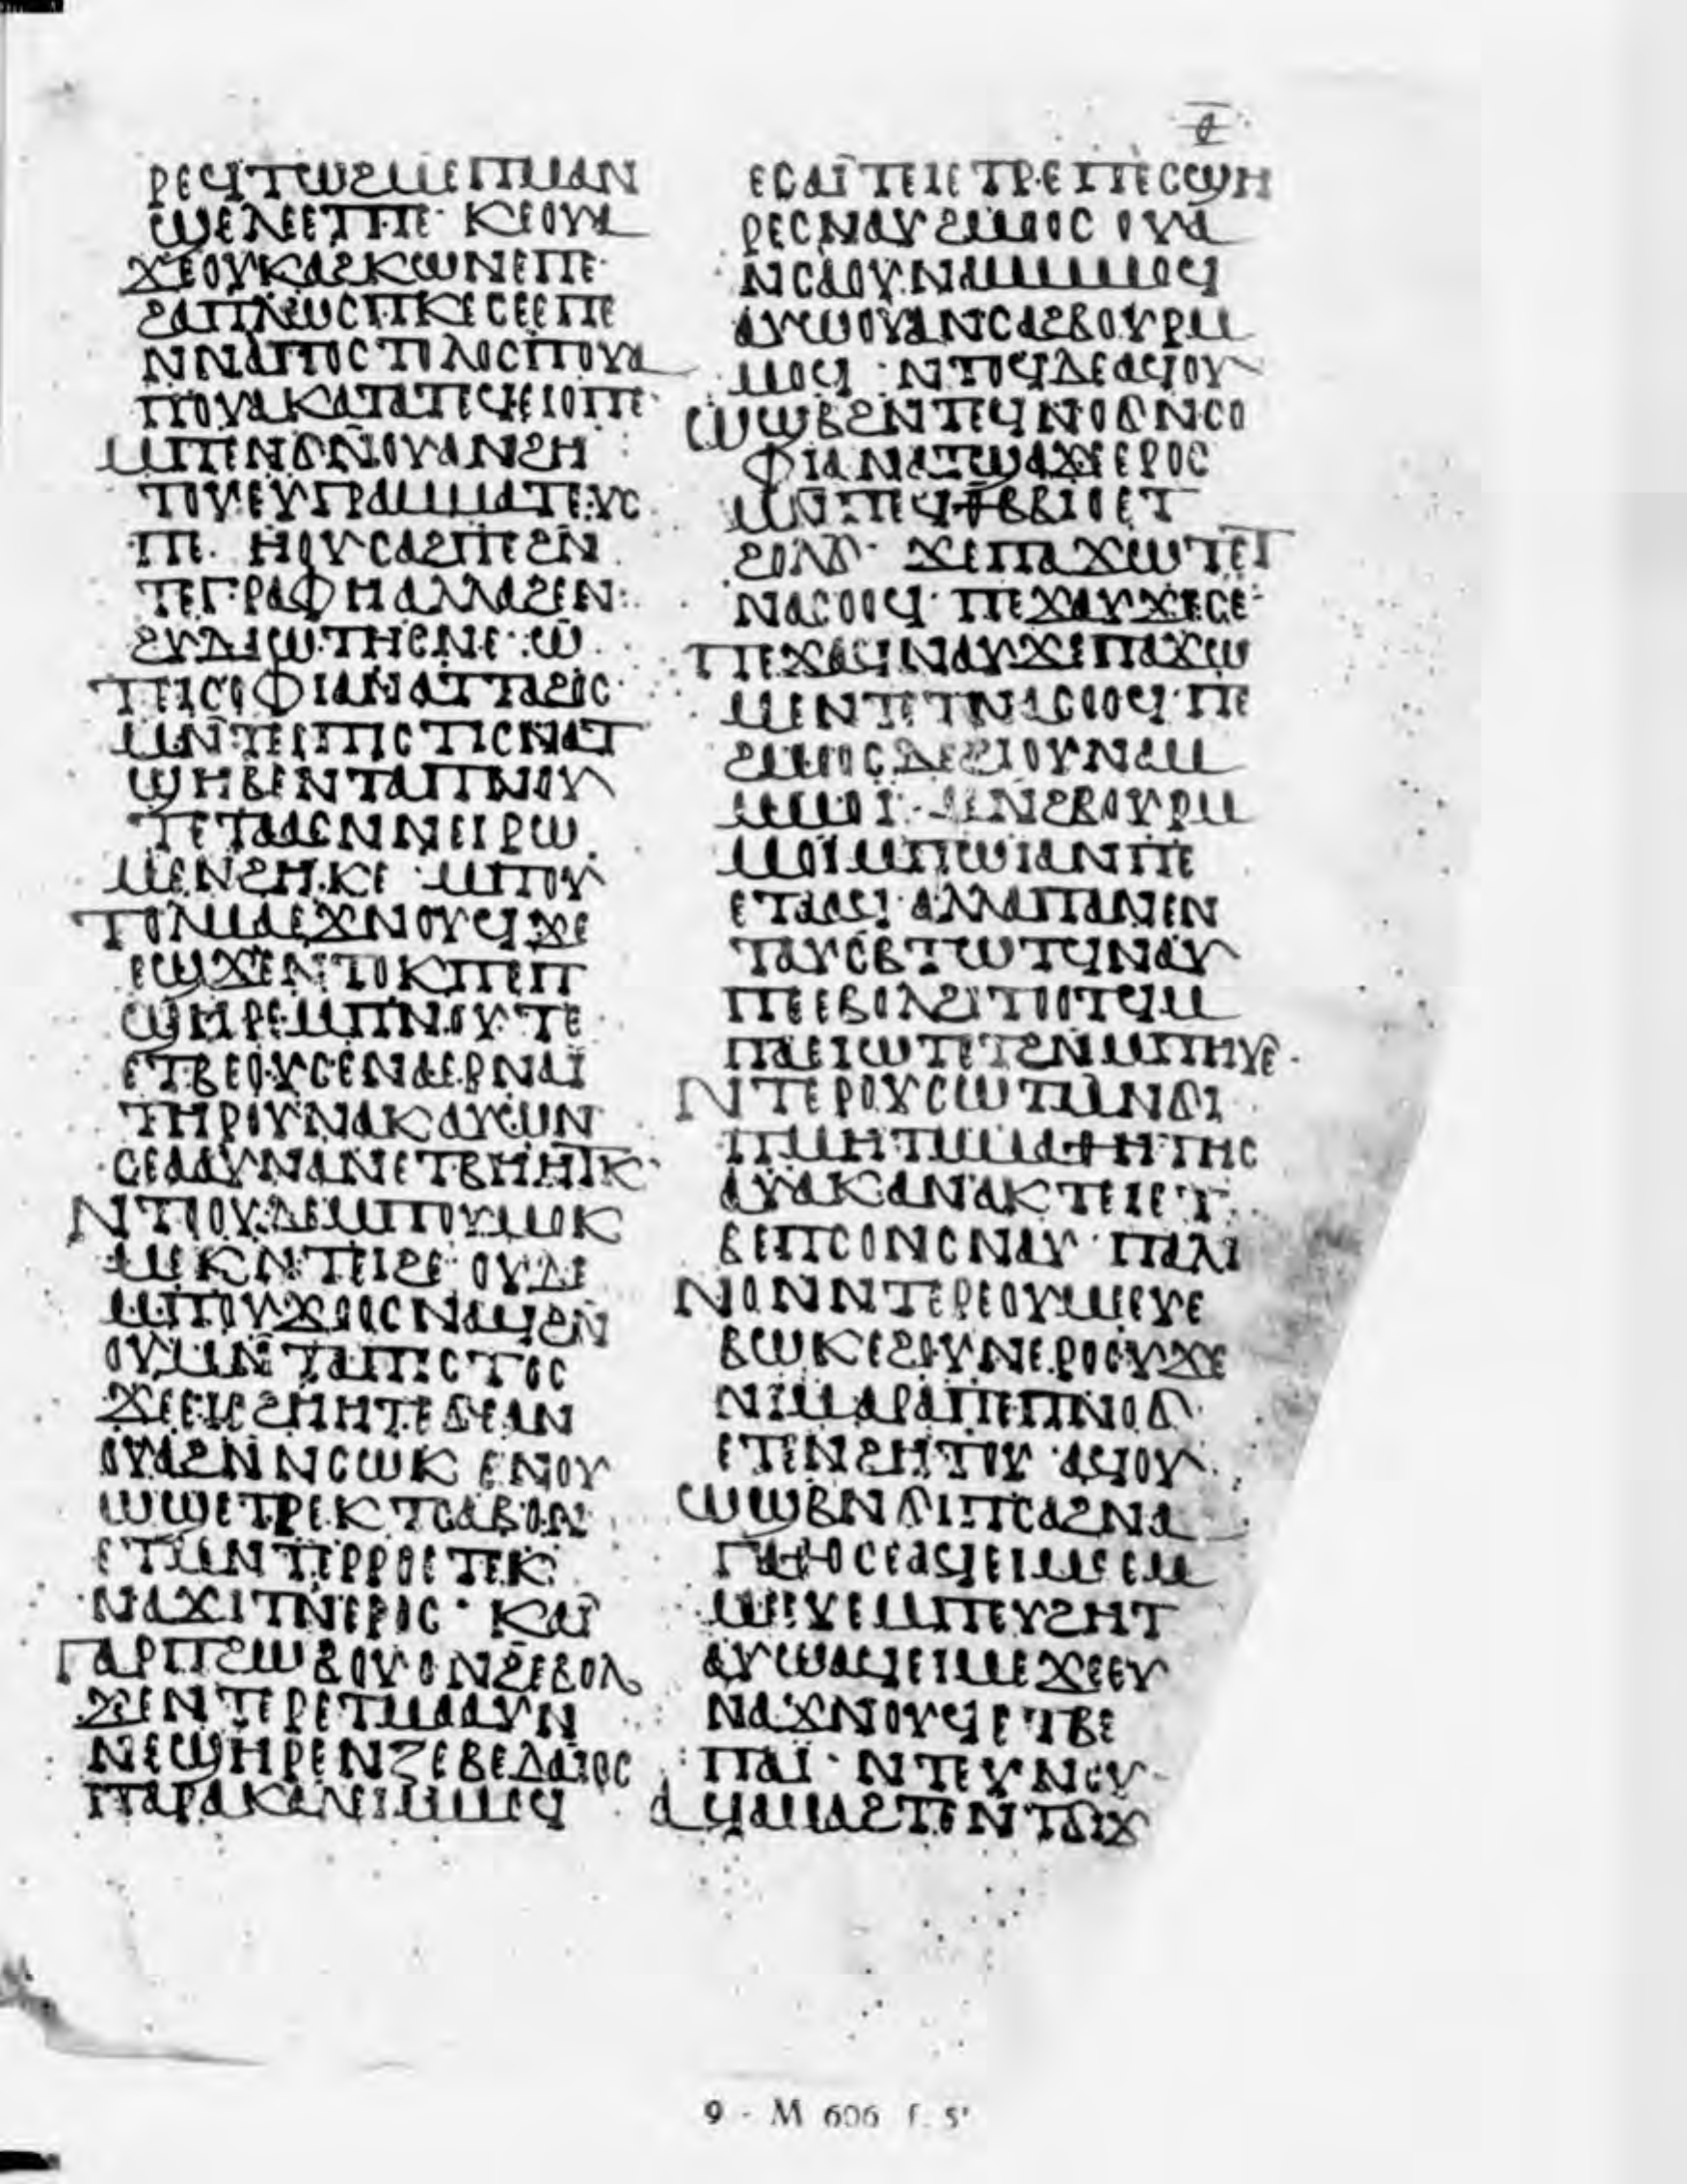 ⲑ
ⲣⲉϥⲧⲱϩⲙⲉⲡⲙⲁⲛ
ϣⲉⲗⲉⲉⲧⲡⲉ· ⲕⲉⲟⲩⲁ
ϫⲉⲟⲩⲕⲁϩⲕⲱⲛⲉⲡⲉ·
ϩⲁⲡⲗⲱⲥⲡⲕⲉⲥⲉⲉⲡⲉ
ⲛⲛⲁⲡⲟⲥⲧⲟⲗⲟⲥⲡⲟⲩⲁ
ⲡⲟⲩⲁⲕⲁⲧⲁⲧⲉϥⲉⲓⲟⲡⲉ·
ⲙⲡⲉⲛϭⲛⲟⲩⲁⲛϩⲏ
ⲧⲟⲩⲉⲩⲅⲣⲁⲙⲙⲁⲧⲉⲩⲥ
ⲡⲉ· ⲏⲟⲩⲥⲁϩⲡⲉϩⲛ
ⲧⲉⲅⲣⲁⲫⲏⲁⲗⲗⲁϩⲉⲛ
ϩⲩⲇⲓⲱⲧⲏⲥⲛⲉ· ⲱ
ⲧⲉⲓⲥⲟⲫⲓⲁⲛⲁⲧⲧⲁϩⲟⲥ·
ⲙⲛⲧⲉⲓⲡⲓⲥⲧⲓⲥⲛⲁⲧ
ϣⲏⲃⲉⲛⲧⲁⲡⲛⲟⲩ
ⲧⲉⲧⲁⲁⲥⲛⲛⲉⲓⲣⲱ
ⲙⲉⲛϩⲏⲕⲉ· ⲙⲡⲟⲩ
ⲧⲟⲗⲙⲁⲉϫⲛⲟⲩϥϫⲉ
ⲉϣϫⲉⲛⲧⲟⲕⲡⲉⲡ
ϣⲏⲣⲉⲙⲡⲛⲟⲩⲧⲉ
ⲉⲧⲃⲉⲟⲩⲥⲉⲛⲁⲉⲣⲛⲁⲓ̈
ⲧⲏⲣⲟⲩⲛⲁⲕⲁⲩⲱⲛ
ⲥⲉⲁⲁⲩⲛⲁⲛⲉⲧⲃⲏⲏⲧⲕ·
ⲛⲧⲟⲟⲩⲇⲉⲙⲡⲟⲩⲙⲟⲕ
ⲙⲉⲕⲛⲧⲉⲓϩⲉ· ⲟⲩⲇⲉ
ⲙⲡⲟⲩϫⲟⲟⲥⲛⲁϥϩⲛ
ⲟⲩⲙⲛⲧⲁⲡⲓⲥⲧⲟⲥ
ϫⲉⲉⲓⲥϩⲏⲏⲧⲉⲁⲛ
ⲟⲩⲁϩⲛⲛⲥⲱⲕ ⲉⲛⲟⲩ
ⲱϣⲉⲧⲣⲉⲕⲧⲥⲁⲃⲟⲛ
ⲉⲧⲙⲛⲧⲉⲣⲣⲟⲉⲧⲉⲕ
ⲛⲁϫⲓⲧⲛⲉⲣⲟⲥ· ⲕⲁⲓ̈
ⲅⲁⲣⲡϩⲱⲃⲟⲩⲟⲛϩⲉⲃⲟⲗ
ϫⲉⲛⲧⲉⲣⲉⲧⲙⲁⲁⲩⲛ
ⲛⲉϣⲏⲣⲉⲛⲍⲉⲃⲉⲇⲁⲓⲟⲥ
ⲡⲁⲣⲁⲕⲁⲗⲉⲓⲙⲙⲟϥ
ⲉⲥⲁⲓⲧⲉⲓⲉⲧⲣⲉⲡⲉⲥϣⲏ
ⲣⲉⲥⲛⲁⲩϩⲙⲟⲟⲥ ⲟⲩⲁ
ⲛⲥⲁⲟⲩⲛⲁⲙⲙⲙⲟϥ
ⲁⲩⲱⲟⲩⲁⲛⲥⲁϩⲃⲟⲩⲣⲙ
ⲙⲟϥ· ⲛⲧⲟϥⲇⲉⲁϥⲟⲩ
ⲱϣⲃϩⲛⲧⲉϥⲛⲟϭⲛⲥⲟ
ⲫⲓⲁⲛⲁⲧϣⲁϫⲉⲉⲣⲟⲥ
ⲙⲛⲡⲉϥⲑⲃⲃⲓⲟⲉⲧ
ϩⲟⲗϭ· ϫⲉⲡⲁϫⲱⲧⲉⲧ
ⲛⲁⲥⲟⲟϥ· ⲡⲉϫⲁⲩϫⲉⲥⲉ·
ⲡⲉϫⲁϥⲛⲁⲩϫⲉⲡⲁϫⲱ
ⲙⲉⲛⲧⲉⲧⲛⲁⲥⲟⲟϥ· ⲡⲉ
ϩⲙⲟⲟⲥⲇⲉϩⲓⲟⲩⲛⲁⲙ
ⲙⲙⲟⲓ̈· ⲙⲛϩⲃⲟⲩⲣⲙ
ⲙⲟⲓ̈ⲙⲡⲱⲓⲁⲛⲡⲉ
ⲉⲧⲁⲁϥ· ⲁⲗⲗⲁⲡⲁⲛⲉⲛ
ⲧⲁⲩⲥⲃⲧⲱⲧϥⲛⲁⲩ
ⲡⲉⲉⲃⲟⲗϩⲓⲧⲟⲟⲧϥⲙ
ⲡⲁⲉⲓⲱⲧⲉⲧϩⲛⲙⲡⲏⲩⲉ·
ⲛⲧⲉⲣⲟⲩⲥⲱⲧⲙⲛϭⲓ
ⲡⲙⲏⲧⲙⲙⲁⲑⲏⲧⲏⲥ
ⲁⲩⲁⲕⲁⲛⲁⲕⲧⲉⲓⲉⲧ
ⲃⲉⲡⲥⲟⲛⲥⲛⲁⲩ· ⲡⲁⲗⲓ
ⲛⲟⲛⲛⲧⲉⲣⲉⲟⲩⲙⲉⲉⲩⲉ
ⲃⲱⲕⲉϩⲟⲩⲛⲉⲣⲟⲟⲩϫⲉ
ⲛⲓⲙⲁⲣⲁⲡⲉⲡⲛⲟϭ
ⲉⲧⲛϩⲏⲧⲟⲩ· ⲁϥⲟⲩ
ⲱϣⲃⲛϭⲓⲡⲥⲁϩⲛⲁ
ⲅⲁⲑⲟⲥⲉⲁϥⲉⲓⲙⲉⲉⲙ
ⲙⲉⲉⲩⲉⲙⲡⲉⲩϩⲏⲧ
ⲁⲩⲱⲁϥⲉⲓⲙⲉϫⲉⲉⲩ
ⲛⲁϫⲛⲟⲩϥⲉⲧⲃⲉ
ⲡⲁⲓ̈· ⲛⲧⲉⲩⲛⲟⲩ
ⲁϥⲁⲙⲁϩⲧⲉⲛⲧϭⲓϫ
9 - M 606 f. 5ʳ